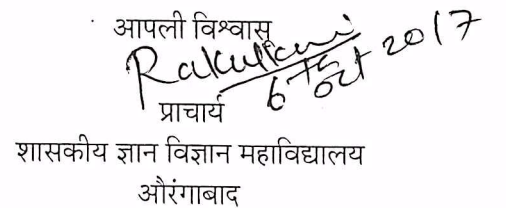 आपली विश्वासू
Rakulkarni
6th Oct 2017
प्राचार्य
शासकीय ज्ञान विज्ञान महाविद्यालय
औरंगाबाद